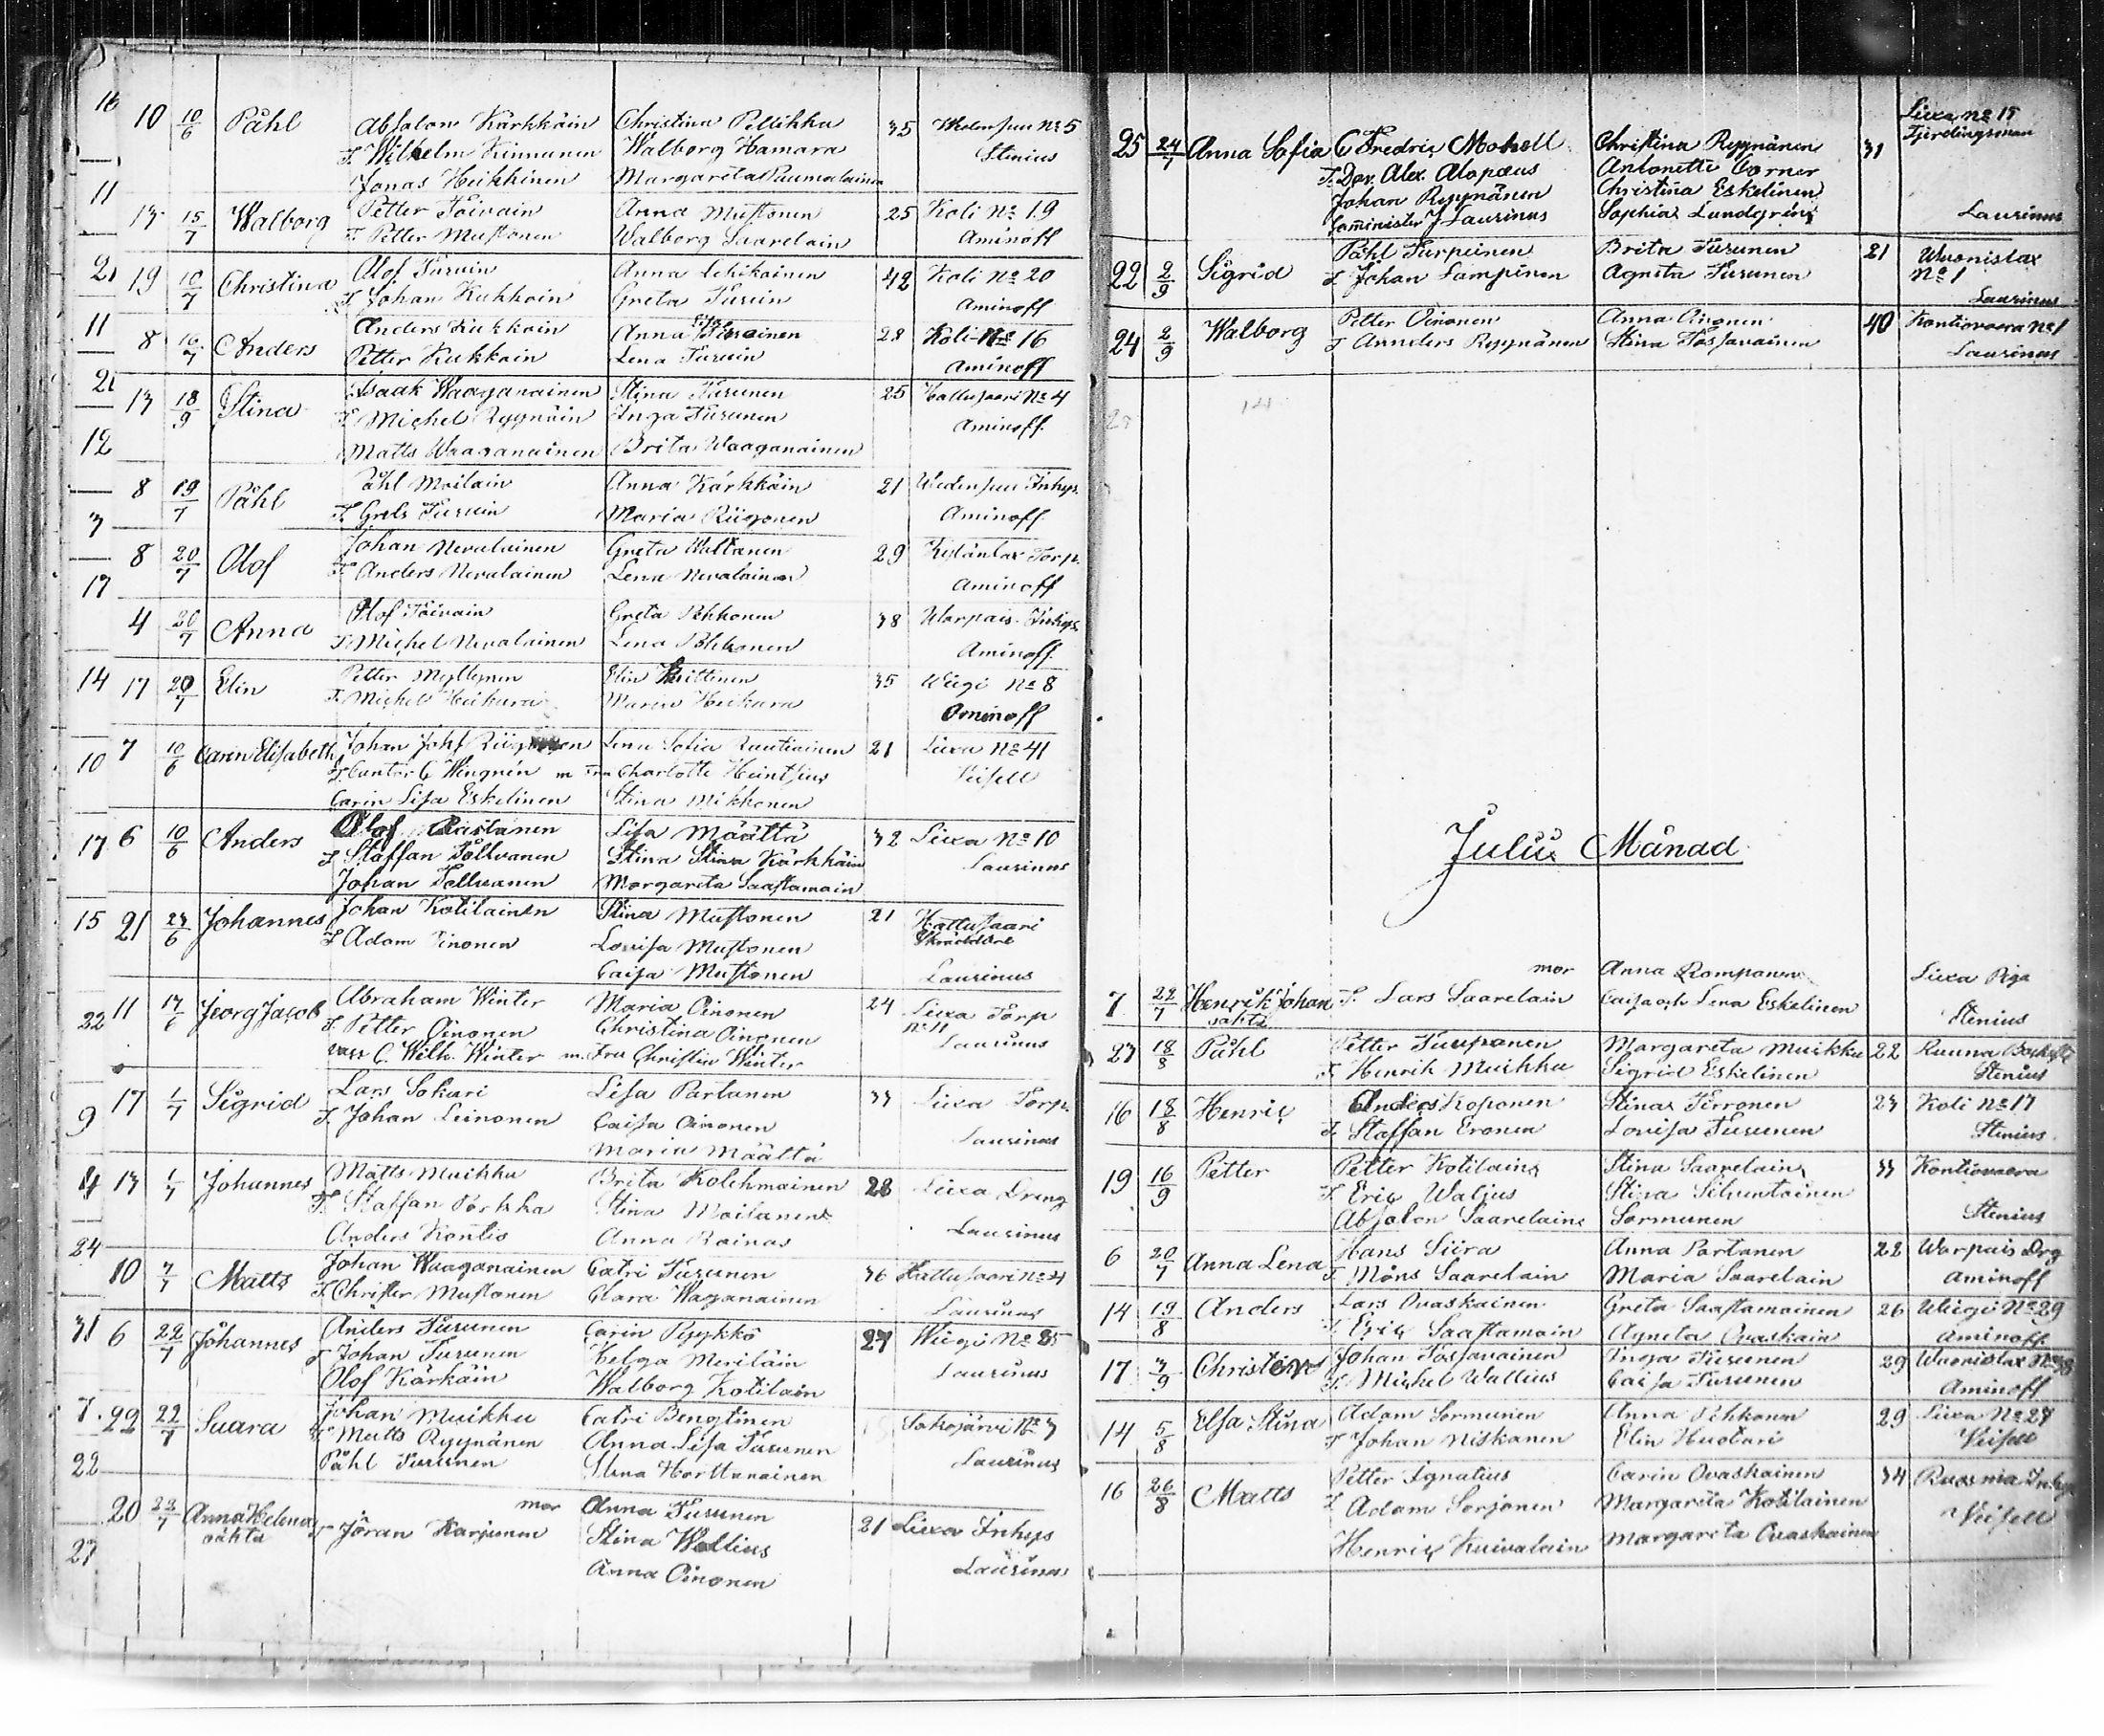 16
10 10/6 Påhl Absalon Kärkkäin Christina Pellikka 35 No 5
F. Wilhelm Kinnunen Walborg Hamara Stenius
Jonas Heikkinen Margareta
11
13 15/7 Walborg Petter Toivain Anna Mustonen 25 Koli No 19
F. Petter Mustonen Walborg Saarelain Aminoff
21 19 10/7 Christina Olof Turuin Anna 42 Koli No 20
F. Johan Kukkoin Greta Turuin Aminoff
11 8 16/7 Anders Anders Kukkoin Anna 28 Koli No 16
Petter Kukkain Lena Turuin Aminoff
21 13 18/9 Stina Isaak Waaganainen Stina Turunen 25 Hattusaari No 4
F. Michel Ryynäin Inga Turunen Aminoff
12 Matts Waaganainen Brita Waaganainen
8 19/7 Påhl Påhl Moilain Anna Kärkkäin 21 Inhys
F. Grels Turuin Maria Riigonen Aminoff
3
8 20/7 Olof Johan Nevalainen Greta Waltanen 29 Torp.
F. Anders Nevalainen Lena Nevalainen Aminoff
17
4 20/7 Anna Olof Toivain Greta Pehkonen 38 Warpais Inhys
F. Michel Nevalainen Lena Pehkonen Aminoff
14 17 20/7 Elin Petter Myllynen Elin 35 Wiegi No 8
F. Michel Heikura Maria Heikura Aminoff
10 7 10/6 Carin Elisabeth Johan Lena Sofia Rautiainen 21 Lixa No 41
F. Cantor C Wengrén m Fru Charlotte Heintsius Veisell
Carin Lisa Eskelinen Stina Mikkonen
17 6 10/6 Anders Olof Lisa Määttä 32 Lixa No 10
F Staffan Tolvanen Stina Stina Kärkkäin Laurinus
Johan Tolvanen Margareta Saastamain
15 21 24/6 Johannes Johan Kotilainen Stina Mustonen 21 Hattusaari
F Adam Oinonen Lovisa Mustonen
Caisa Mustonen Laurinus
22 11 17/6 Jeorg Jacob Abraham Winter Maria Oinonen 24 Lixa Torp
F. Petter Oinonen Christina Oinonen No 11
C. Wilh. Winter m. Fru Christin Winter Laurinus
9 17 1/7 Sigrid Lars Sokuri Lisa Partanen 33 Lixa Torp.
F. Johan Leinonen Caisa Oinonen
Maria Määttä Laurinus
4 13 1/7 Johannes Matts Muikku Brita Kolehmainen 28 Lixa Dreng
F. Staffan Stina Moilanen
Anders Kontio Anna Rainas Laurinus
24
10 3/7 Matts Johan Waaganainen Catri Turunen 36 Hattusaari No 4
F. Christer Mustonen Clara Waganainen Laurinus
31 6 22/7 Johannes Anders Turunen Carin Pyykkö 27 Wiegi No 35
F Johan Turunen Helga Meriläin
Olof Kärkäin Walborg Kotilain Laurinus
7 22 22/7 Saara Johan Muikku Catri Bengtinen Sokojärvi No 3
F. Matts Ryynänen Anna Lisa Turunen
22 Påhl Turunen Stina Horttanainen Laurinus
20 23/7 Anna Helena mor Anna Turunen 21 Lixa Inhys
oäkta F Jöran Karjunen Stina Wallius
27 Anna Oinonen Laurinus
Lixa No 15
25 24/7 Anna Sofia C Fredric Mohell Christina Ryynänen 31 Fjerdingsman
F. Dav. Alex. Alopæus Antonette Corner
Johan Ryynänen Christina Eskelinen
Comminister J Laurinus Sophia Lundegrin Laurinus
22 2/9 Sigrid Påhl Turpeinen Brita Turunen 21 Wuonislax
F Johan Lampinen Agneta Turunen No 1
Laurinus
24 2/9 Walborg Petter Oinonen Anna Oinonen 40 Kontiovaara No 1
F Annders Ryynänen Stina Tossavainen Laurinus
14
Julii Månad
mor Anna Romponen Lixa Piga
7 22/7 Henrik Johan F. Lars Saarelain Caisa och Lena Eskelinen
oäkta Stenius
27 18/8 Påhl Petter Turpanen Margareta Muikku 22 Ruuna
F. Henrik Muikku Sigrid Eskelinen Stenius
16 18/8 Henric Anders Koponen Stina Tirronen 23 Koli No 17
F. Staffan Eronen Lovisa Turunen Stenius
19 16/9 Petter Petter Kotilain Stina Saarelain 33 Kontiovaara
F. Eric Walius Stina Sihvontainen
Absalon Saarelain Sormunen Stenius
6 20/7 Anna Lena Hans Siira Anna Partanen 22 Warpais Drg
F. Måns Saarelain Maria Saarelain Aminoff
14 19/8 Anders Lars Ovaskainen Greta Saastamainen 26 Wiegi No 29
F. Eric Saastamain Agneta Ovaskain Aminoff
17 3/9 Johan Tossavainen Inga Turunen 29 Wuonislax
F. Michel Wallius Caisa Turunen Aminoff
14 5/8 Elsa Stina Adam Sormunen Anna Pehkonen 29 Lixa No 27
F Johan Niskanen Elin Huotari Veisell
16 26/8 Matts Petter Ignatius Carin Ovaskainen 34
F Adam Sorjonen Margareta Kotilainen Veisell
Henric Kuivalain Margareta Ovaskainen